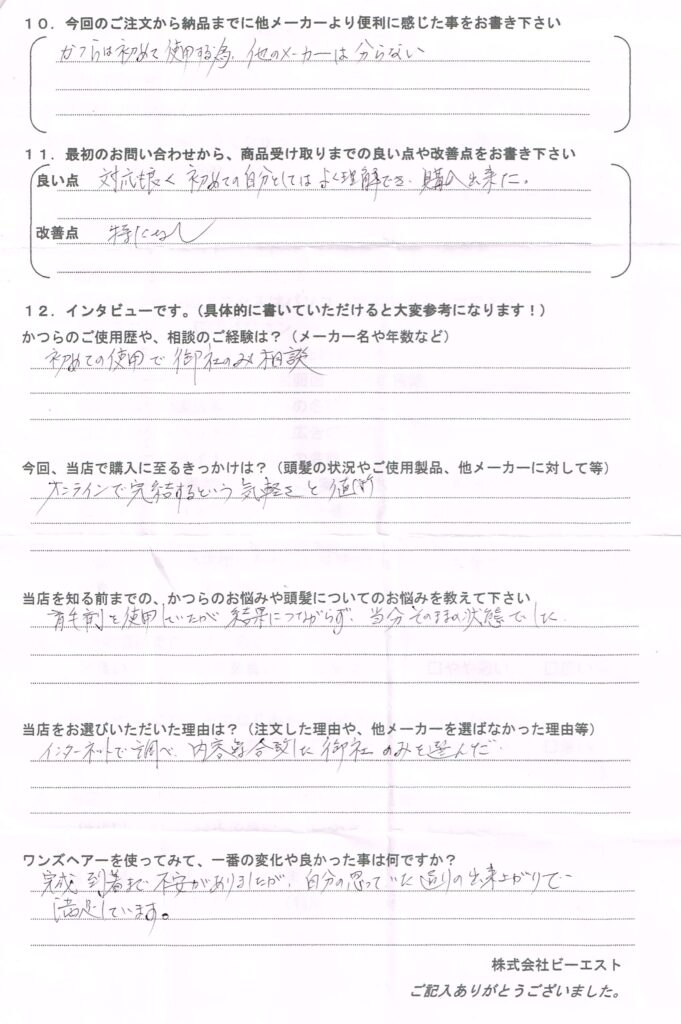 １０．今回のご注文から納品までに他メーカーより便利に感じた事をお書き下さい
かつらは初めて使用する為、他のメーカーは分らない
１１．最初のお問い合わせから、商品受け取りまでの良い点や改善点をお書き下さい
良い点 対応良く初めての自分としてはよく理解でき、購入出来た。
改善点 特になし
１２．インタビューです。（具体的に書いていただけると大変参考になります！）
かつらのご使用歴や、相談のご経験は？（メーカー名や年数など）
初めての使用で御社のみ相談
今回、当店で購入に至るきっかけは？（頭髪の状況やご使用製品、他メーカーに対して等）
オンラインで完結するという気軽さと値段
当店を知る前までの、かつらのお悩みや頭髪についてのお悩みを教えて下さい
育毛剤を使用していたが結果につながらず、当分そのままの状態でした.
当店をお選びいただいた理由は？（注文した理由や、他メーカーを選ばなかった理由等）
インターネットで調べ、内容等合致した御社のみを選んだ.
ワンズヘアーを使ってみて、一番の変化や良かった事は何ですか？
完成到着まで不安がありましたが、自分の思っていた通りの出来上がりで
満足しています。
株式会社ビーエスト
ご記入ありがとうございました。